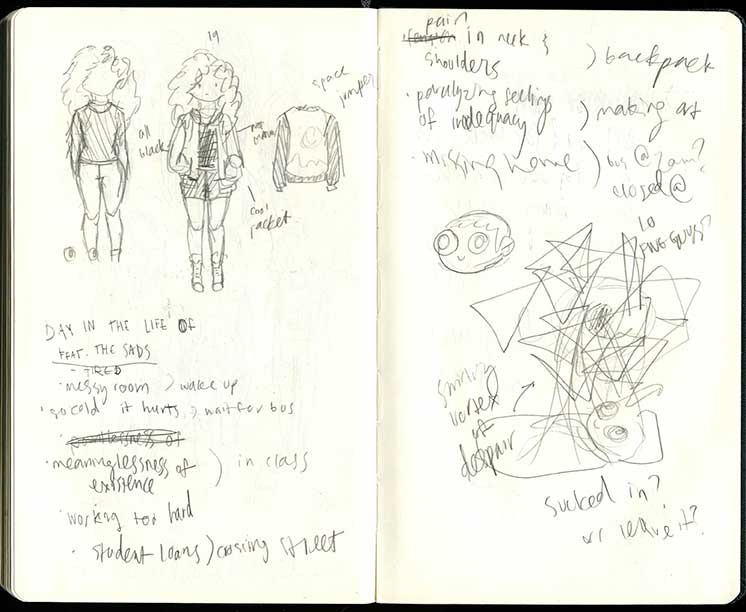 19
space
jumper
all
black
cool
jacket
DAY IN THE LIFE OF
FEAT. THE SADS
- TIRED
· messy room ) wake up
· so cold it hurts ) wait for bus
· meaninglessness of ) in class
existence
· working too hard
· student loans ) crossing street
pain
tension in neck &
shoulders ) backpack
· paralyzing feelings
of inadequacy ) making art
· missing home ) bus @ 2am?
closed @
10
FIVE GUYS?
vortex
of
despair
sucked in?
or leave it?